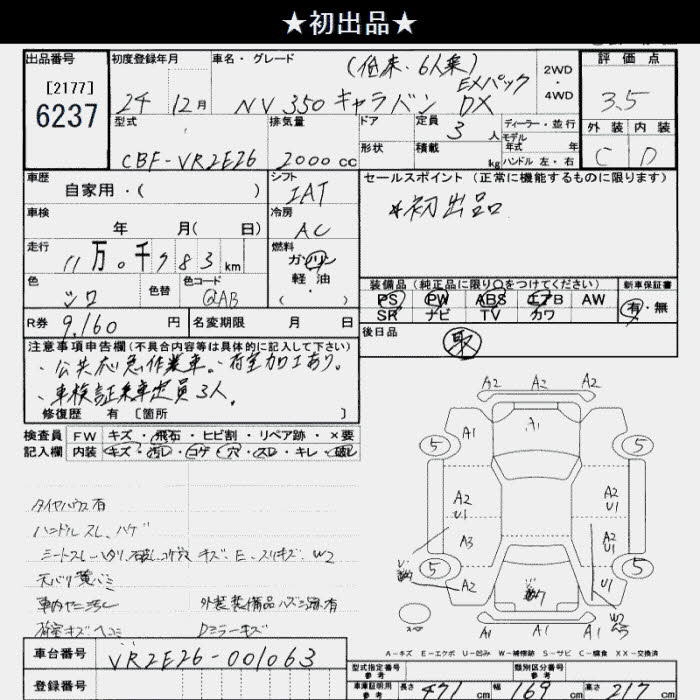 ★初出品★
出品番号 初度登録年月 車名・グレード (低床・6人乗) 2WD・4WD 評価点
[2177] 24 12月 NV350キャラバン EXパック DX 3.5
6237
型式 排気量 ドア 定員 3人 ディーラー・並行 外装 内装
モデル年式 年
CBF-VR2E26 2000cc 形状 積載 kg ハンドル 左・右 C D
車歴 シフト セールスポイント(正常に機能するものに限ります)
自家用・( ) IAT *初出品
車検 冷房
年 月( 日) AC
走行 燃料
11万0千783km ガソリン
軽油 装備品(純正品に限り○をつけてください) 新車保証書
色 色替 色コード ・( ) PS PW ABS エアB AW 有・無
シロ QAB SR ナビ TV カワ
R券 9,160円 名変期限 月 日 後日品 取
注意事項申告欄(不具合内容等は具体的に記入して下さい)
・公共応急作業車。・荷室加工あり。
・車検証乗車定員3人。
修復歴 有 [箇所 ]
検査員 FW キズ・飛石・ヒビ割・リペア跡・×要
記入欄 内装 キズ・汚レ・コゲ・穴・スレ・キレ・破レ
A2 A2 A2
A1 A1 A1
5 5
A2 U1 A2 U1
A3 A2 U1
5 5
A2 U1
W2
A1 A1 A1
タイヤハウス有
ハンドルスレ、ハゲ
シートスレ 破レ コゲ穴 キズ E、スリキズ W2
天バリ
車内ヤニ汚レ 外装装備品ハズシ跡有
荷室キズヘコミ Dミラーキズ
A-キズ E-エクボ U-凹み W-補修跡 S-サビ C-腐食 XX-交換済
車台番号 VR2E26-001063
型式指定番号 参考 類別区分番号 参考
登録番号 車庫証明用 参考 長さ 471cm 幅 169cm 高さ 217cm